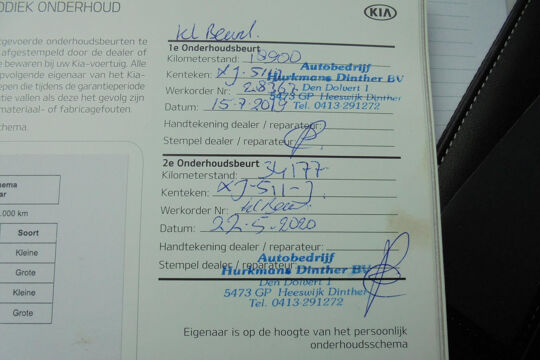 ODIEK ONDERHOUD
KIA
tgevoerde onderhoudsbeurten te
afgestempeld door de dealer of
e bewaren bij uw Kia-voertuig. Alle
pvolgende eigenaar van het Kia-
epen die tijdens de garantieperiode
tie vallen als deze het gevolg zijn
materiaal- of fabricagefouten.
schema.
ema
ar
.000 km
Soort
Kleine
Grote
Kleine
Grote
kl Beurt.
1e Onderhoudsbeurt
Kilometerstand:
Kenteken: XJ-511-J
Werkorder Nr: 28367
Datum: 15.7.2019
Autobedrijf
Hurkmans Dinther BV
Den Dolvert 1
5473 GP Heeswijk Dinther
Tel. 0413-291272
Handtekening dealer / reparateur:
Stempel dealer / reparateur:
2e Onderhoudsbeurt
Kilometerstand: 34177
Kenteken: XJ-511-J
Werkorder Nr: kl Beurt.
Datum: 22-5-2020
Handtekening dealer / reparateur:
Stempel dealer / reparateur:
Autobedrijf
Hurkmans Dinther BV
Den Dolvert 1
5473 GP Heeswijk Dinther
Tel. 0413-291272
Eigenaar is op de hoogte van het persoonlijk
onderhoudsschema